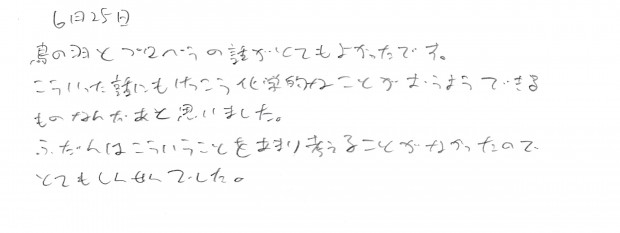 6月25日
鳥の羽とプロペラの話がとてもよかったです。
こういった話にもけっこう化学的なことがおうようできる
ものなんだあと思いました。
ふだんはこういうことをあまり考えることがなかったので
とてもしんせんでした。